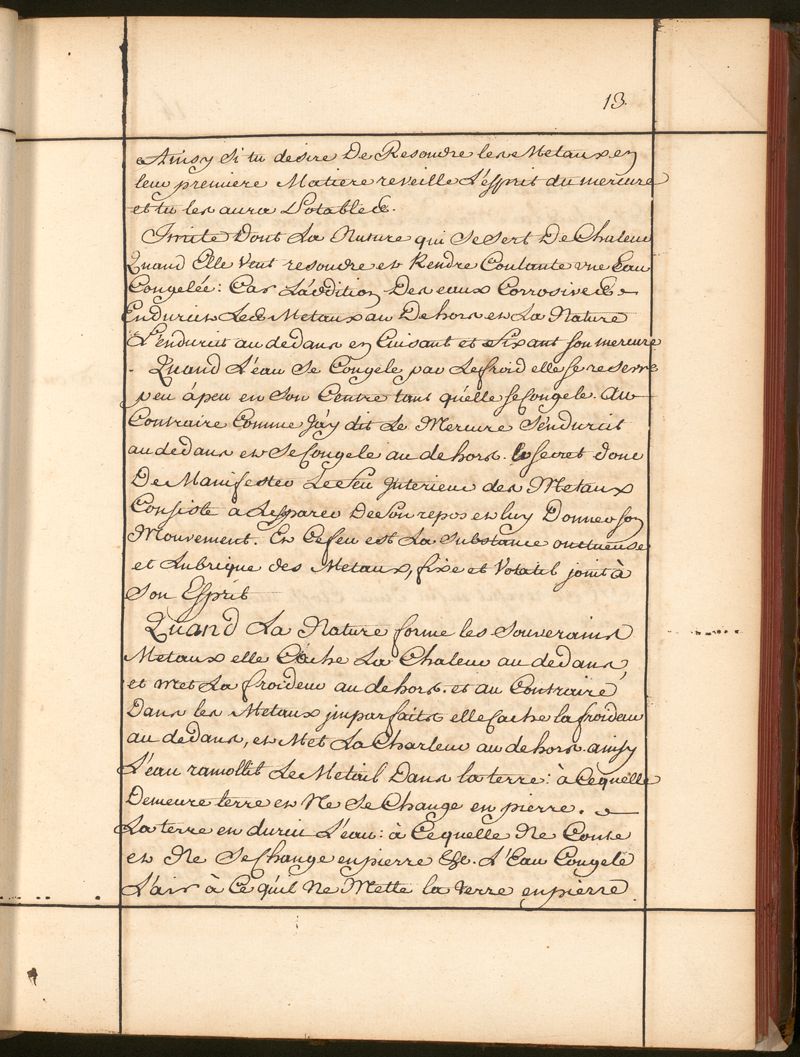 13.
Ainsy Si tu desire De Resoudre les Metaux en
leur premiere Matiere reveille L'esprit du mercure
et tu les aura Potables.
Imite Dont La Nature qui Se Sert De Chaleur
Quand Elle Veut resoudre et Rendre Coulante vne Eau
Congelée: Car L'addition Des eaux Corrosives
Endurcit Les Metaux au Dehors et La Nature
L'endurcit au dedans en Cuisant et Fixant son mercure
Quand L'eau Se Congele par Le froid elle se reserre
peu à peu en Son Centre tant qu'elle se Congele. Au
Contraire Comme J'ay dit Le Mercure S'endurcit
au dedans et Se Congele au dehors. le secret donc
De Manifester Le feu Jnterieur des Metaux
Consiste à Le separer De Son repos et luy Donner son
Mouvement. Et Ce feu est La Substance onctueuse
et Lubrique des Metaux, fixe et Volatil joint à
Son Esprit
Quand La Nature forme les Souverains
Metaux elle Cache La Chaleur au dedans,
et met La froideur au dehors. et au Contraire
Dans les Metaux jmparfaits elle Cache la froideur
au dedans, et Met La Charleur au dehors. ainsy
L'eau ramollit Le Metail Dans la terre: à Ce quelle
Demeure terre et Ne Se Change en pierre.
La terre en durcit L'eau: à Ce quelle Ne Coule
et Ne Se Change en pierre &c. L'Eau Congele
L'air à Ce qu'il Ne Mette la terre en pierre